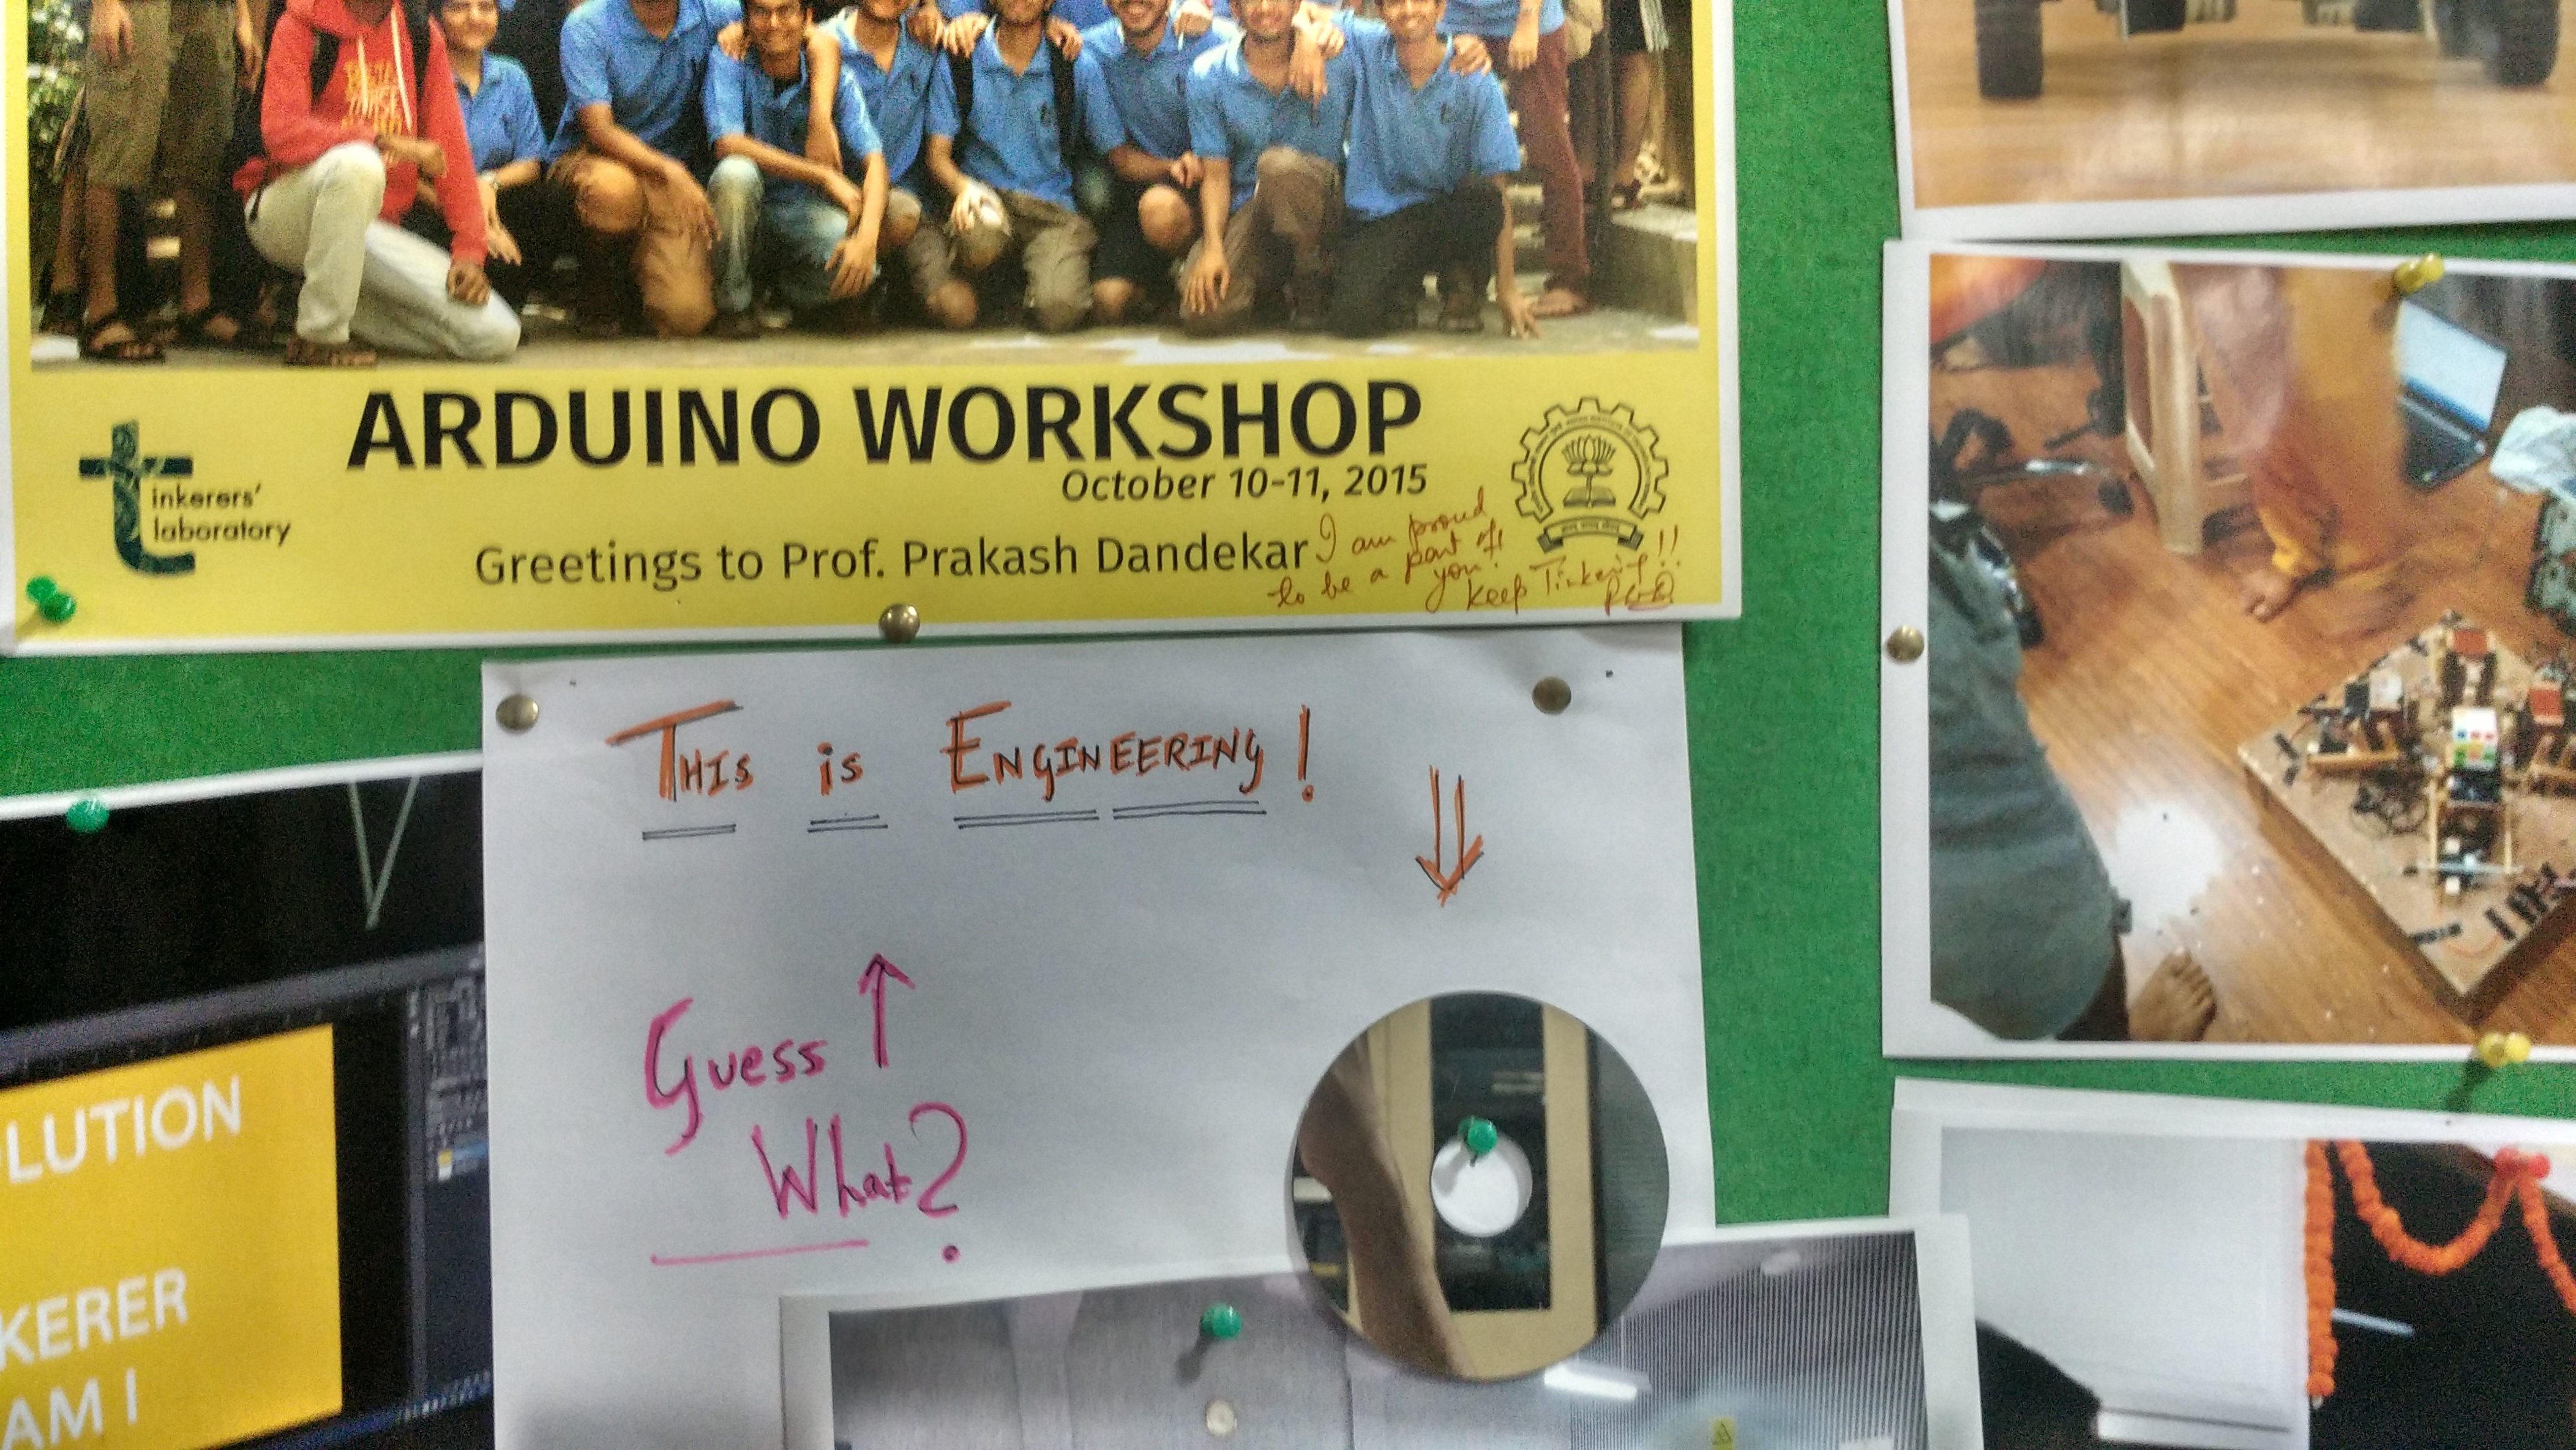 ARDUINO WORKSHOP
October 10-11, 2015
tinkerers'
laboratory
Greetings to Prof. Prakash Dandekar
I am proud
to be a part of
you!
Keep Tinkering!!
THIS is ENGINEERING!
Guess
What?
LUTION
KERER
AM I